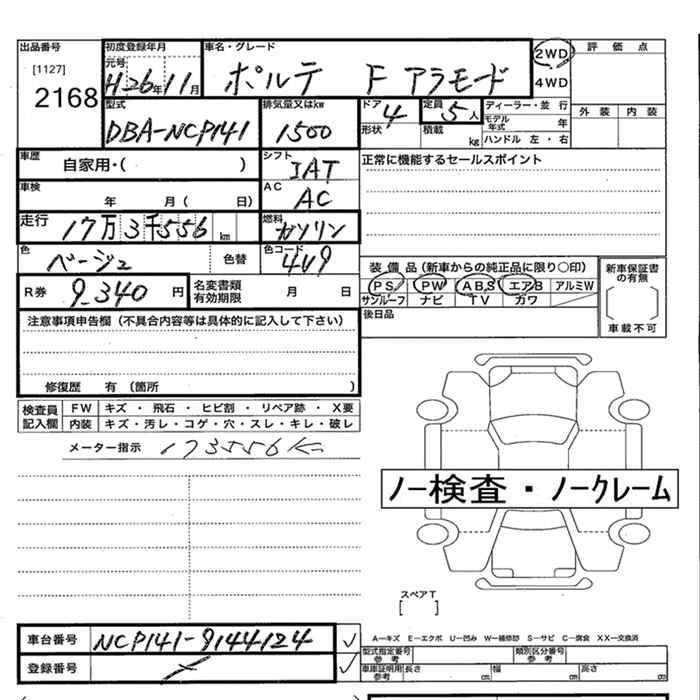 出品番号 初度登録年月 車名・グレード 2WD 評価点
[1127] 元号
2168 H26年11月 ポルテ F アラモード 4WD
型式 排気量又はkw ドア 定員 ディーラー・並 行 外装 内装
DBA-NCP141 1500 4 5人 モデル年式 年
形状 積載 kg ハンドル 左・右
車歴 自家用・( ) シフト IAT 正常に機能するセールスポイント
車検 年 月( 日) AC AC
走行 17万3千556km 燃料 ガソリン
色 ベージュ 色替 色コード 4U9 装備品(新車からの純正品に限り〇印) 新車保証書の有無
R券 9,340円 名変書類有効期限 月 日 PS PW ABS エアB アルミW
サンルーフ ナビ TV カワ [ ]
注意事項申告欄(不具合内容等は具体的に記入して下さい) 後日品 車載不可
修復歴 有(箇所 )
検査員記入欄 FW キズ・飛石・ヒビ割・リペア跡・X要
内装 キズ・汚レ・コゲ・穴・スレ・キレ・破レ
メーター指示 173556K
ノー検査・ノークレーム
スペアT
[ ]
車台番号 NCP141-9144124 A-キズ E-エクボ U-凹み W-補修跡 S-サビ C-腐食 XX-交換済
登録番号 型式指定番号参考 類別区分番号参考
車庫証明用参考 長さ cm 幅 cm 高さ cm